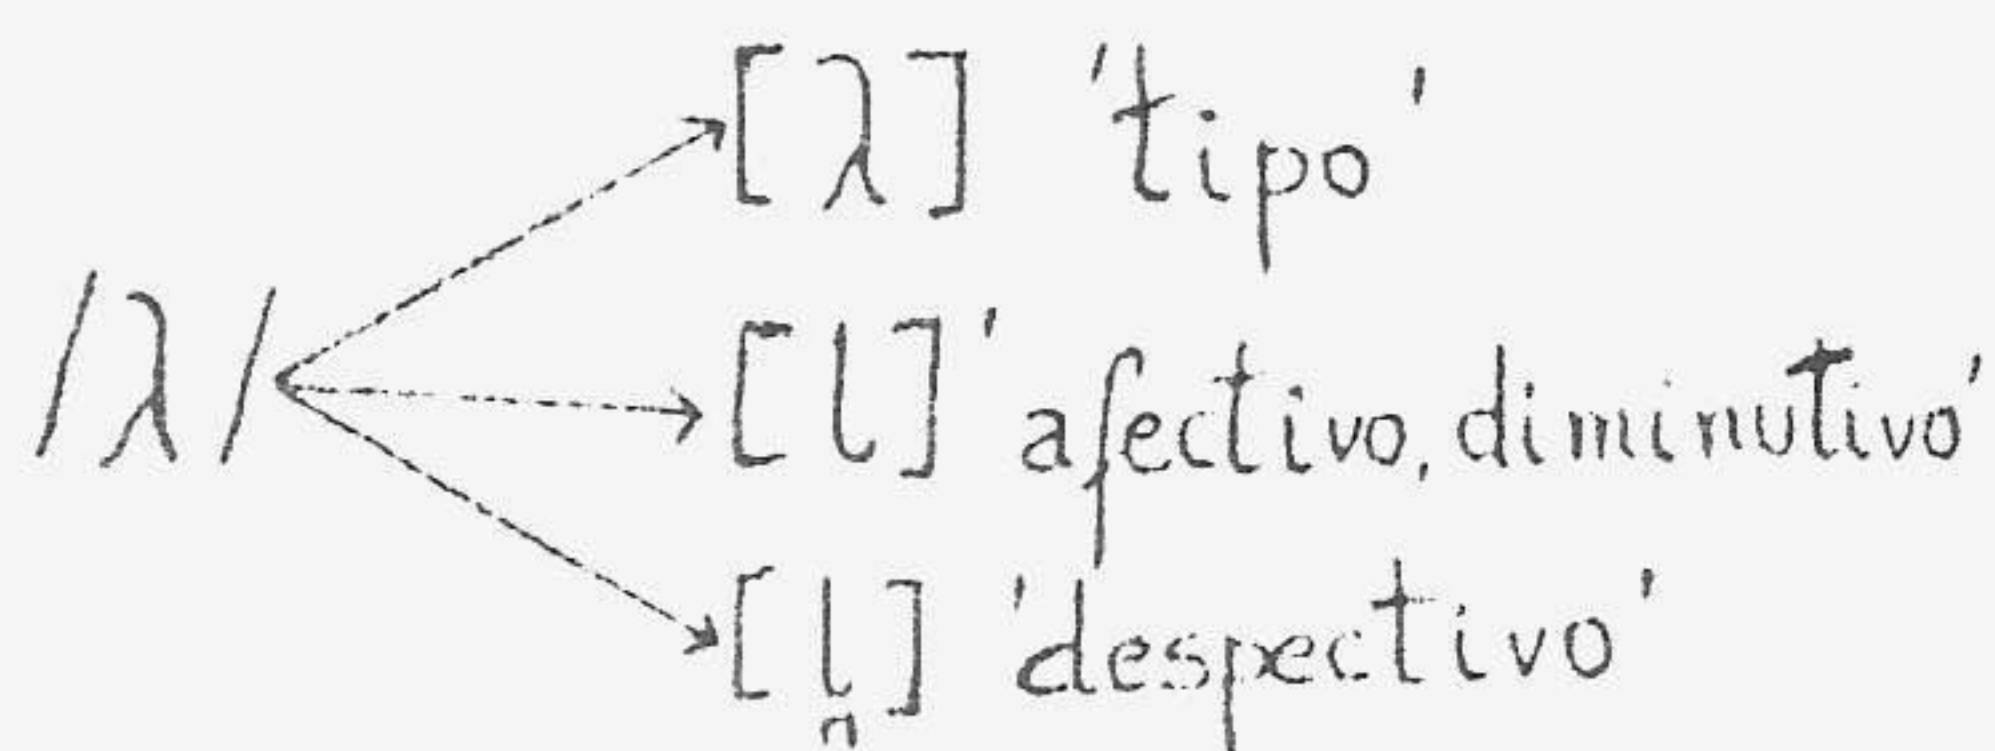 [λ] 'tipo'
/λ/
[l] 'afectivo, diminutivo'
[l̪] 'despectivo'